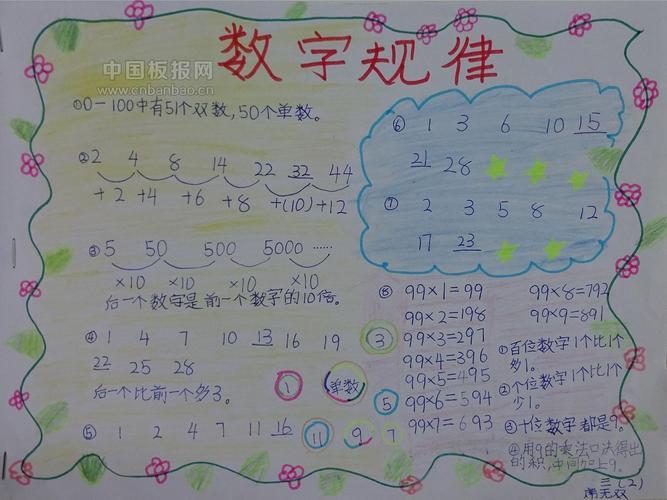 数字规律
中国板报网
www.cnbanbao.cn
①0—100中有51个双数,50个单数。
② 2 4 8 14 22 32 44
+2 +4 +6 +8 +(10) +12
③ 5 50 500 5000 ……
×10 ×10 ×10 ×10
后一个数字是前一个数字的10倍。
④ 1 4 7 10 13 16 19
22 25 28
后一个比前一个多3。
⑤ 1 2 4 7 11 16
① 单数 ③ ⑤ ⑦ ⑨ ⑪
⑥ 1 3 6 10 15
21 28
⑦ 2 3 5 8 12
17 23
⑧ 99×1=99 99×8=792
99×2=198 99×9=891
99×3=297
99×4=396
99×5=495
99×6=594
99×7=693
①百位数字1个比1个
多1。
②个位数字1个比1个
少1。
③十位数字都是9。
④用9的乘法口决得出
的积,中间加上9。
三(2)
无双